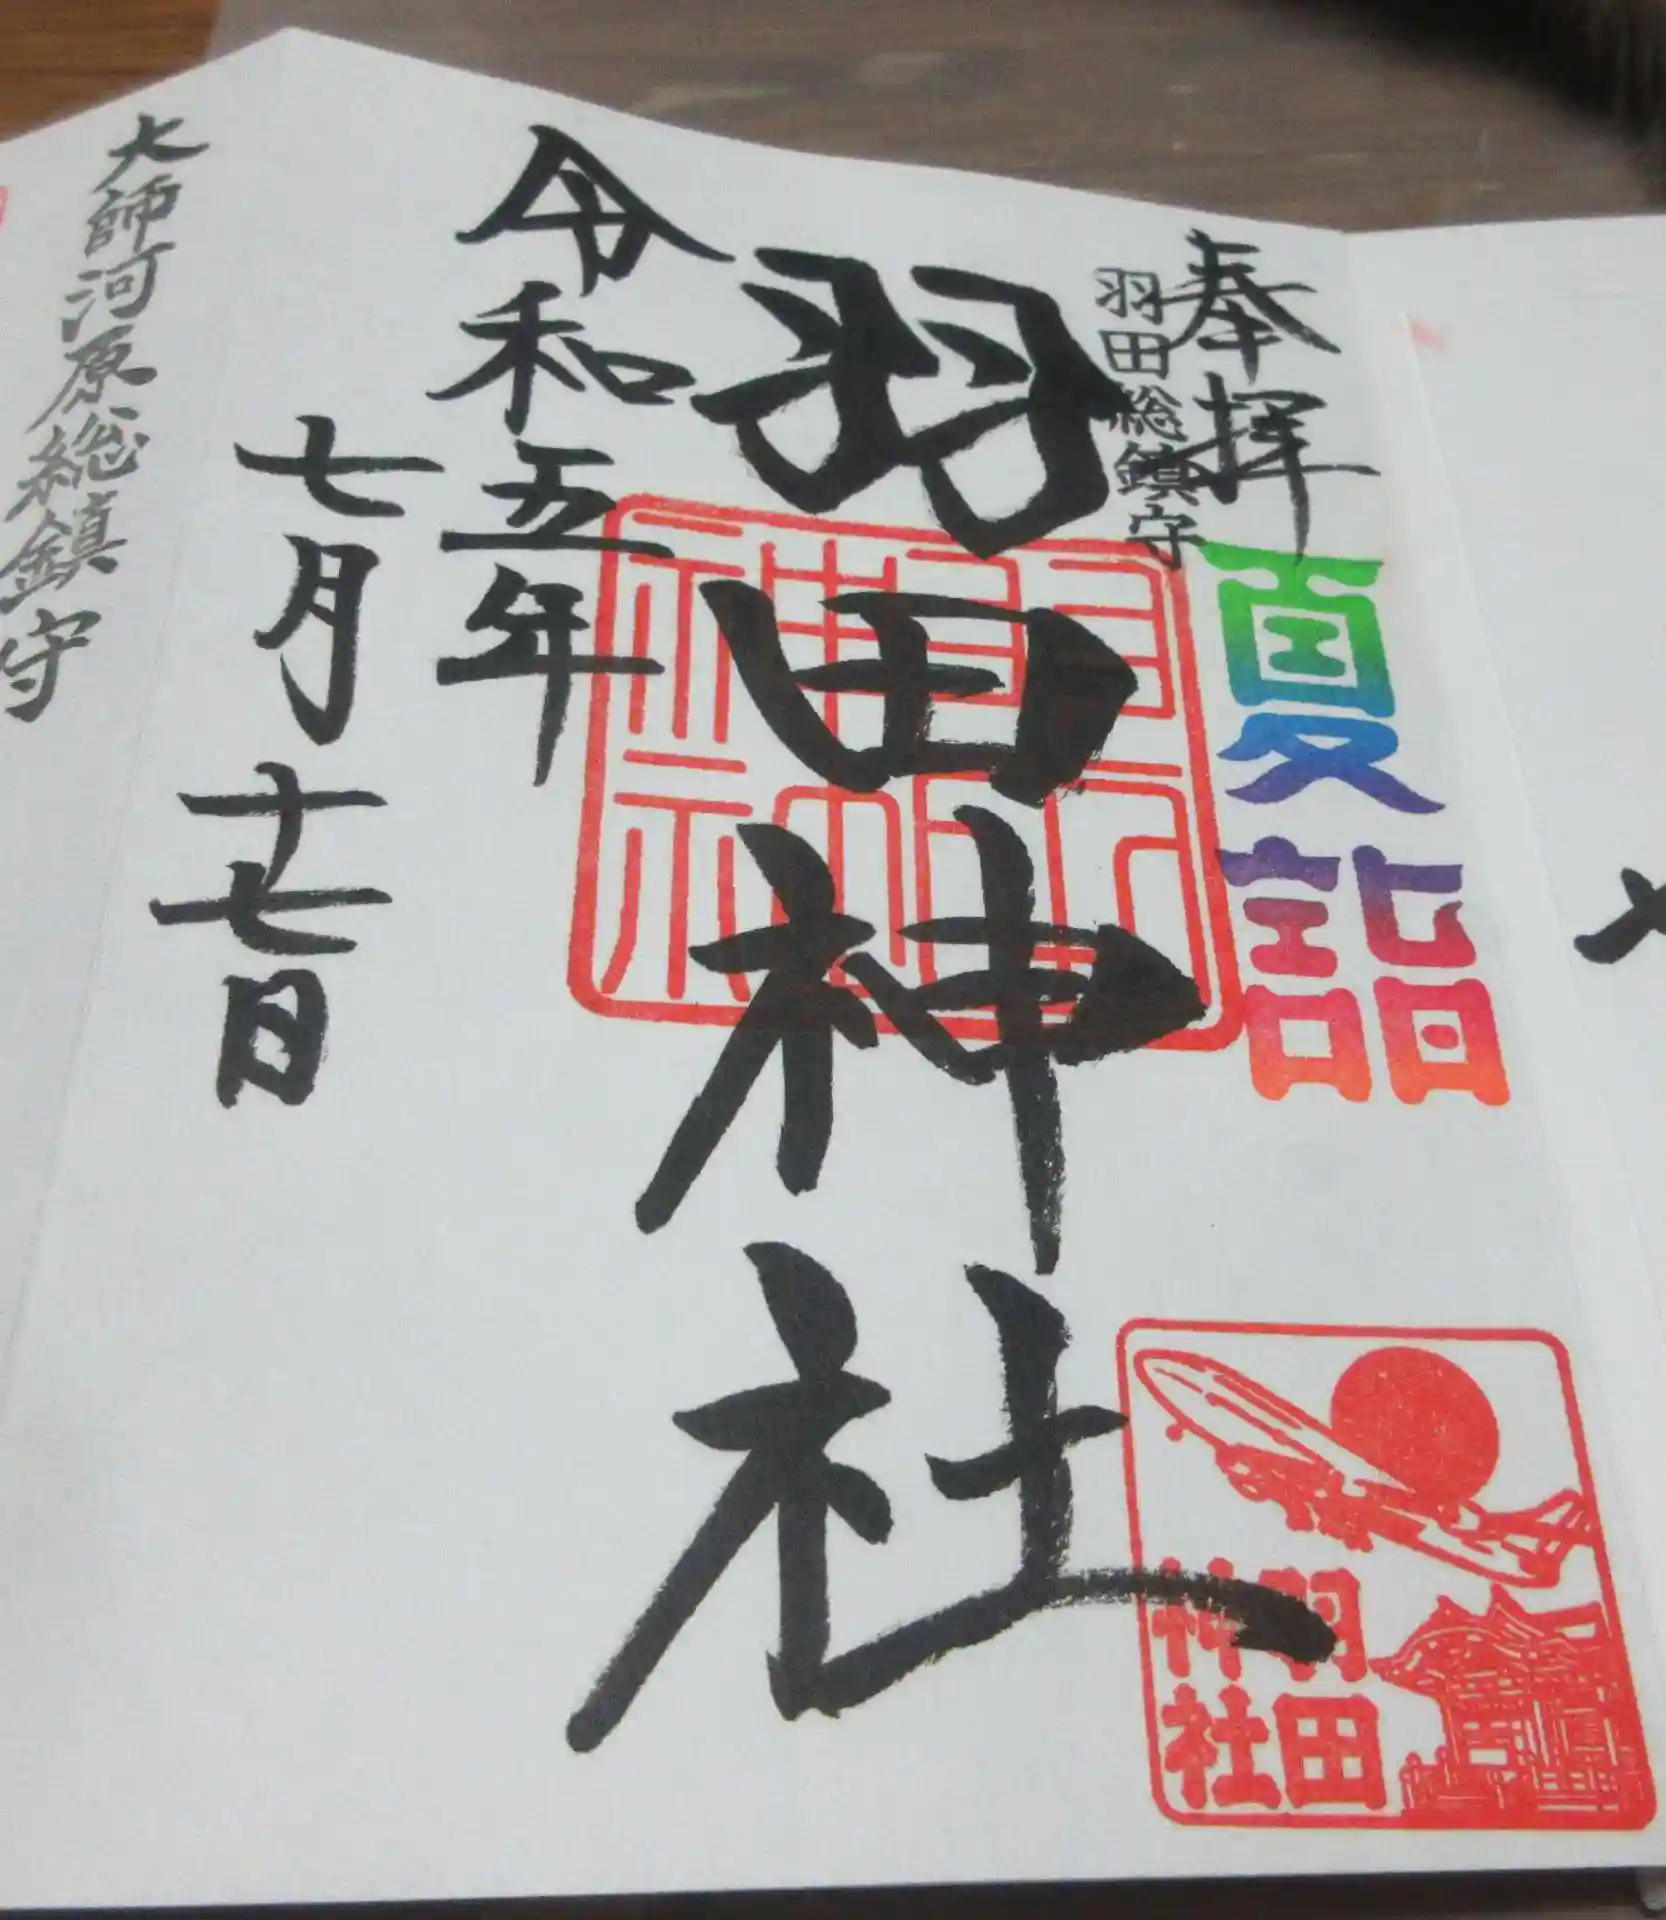 奉拝
羽田総鎮守
夏詣
羽田神社
羽田
神社
令和五年
七月十七日
大師河原総鎮守